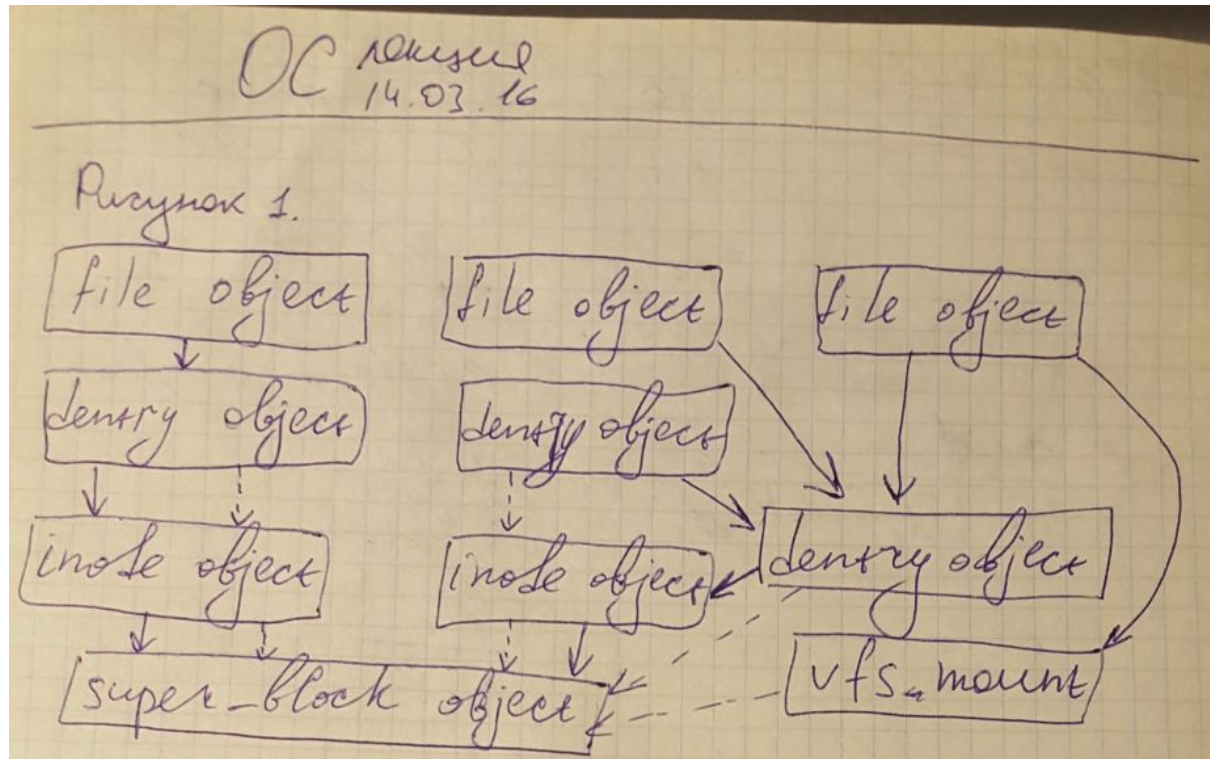 ОС лекция
14.03.16
Рисунок 1.
file object
file object
file object
dentry object
dentry object
inode object
inode object
dentry object
super_block object
vfs_mount